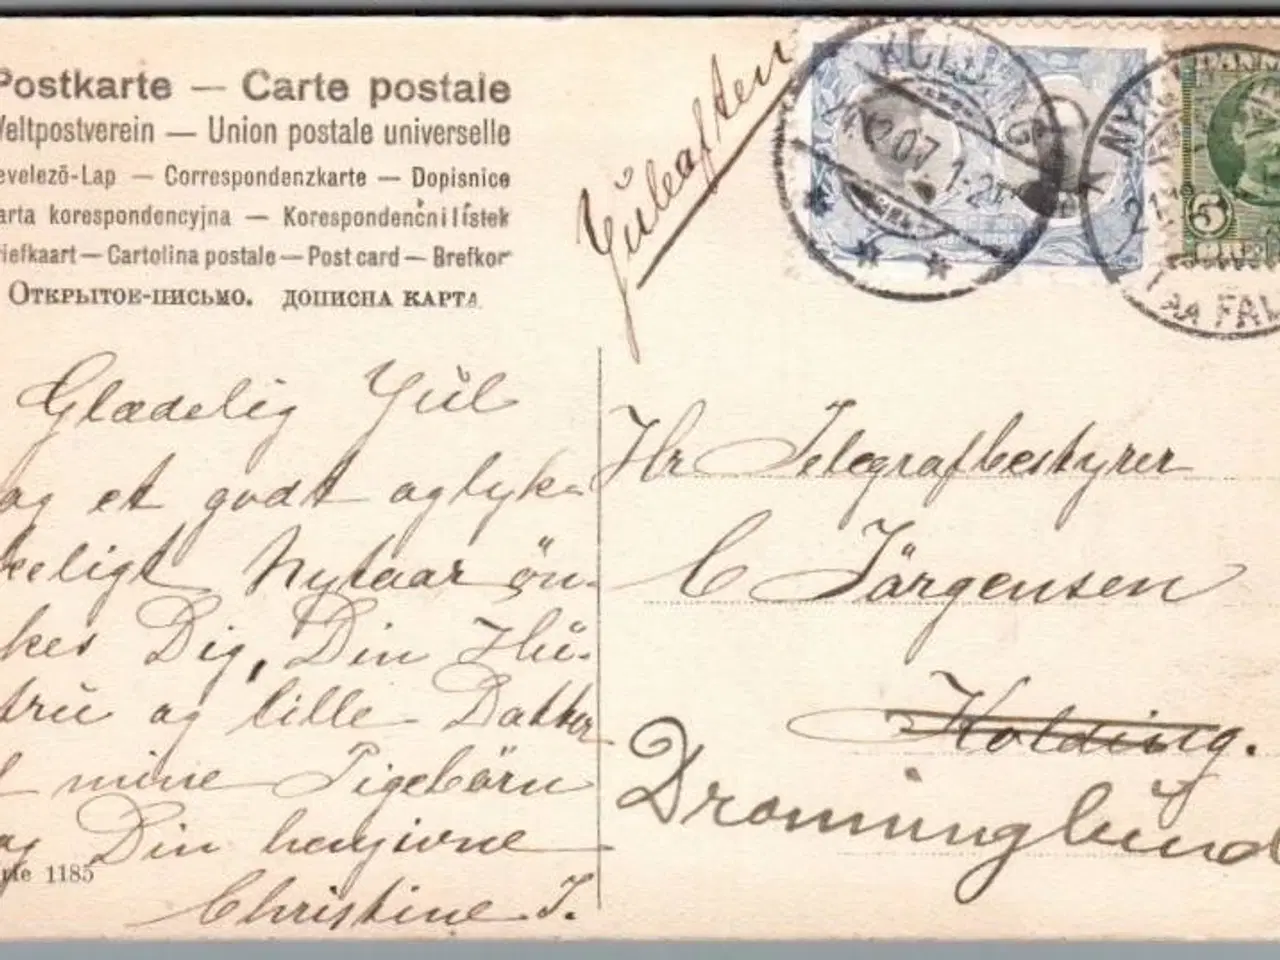 Postkarte — Carte postale
Weltpostverein — Union postale universelle
evelező-Lap — Correspondenzkarte — Dopisnice
arta korespondencyjna — Korespondenčni lístek
riefkaart — Cartolina postale — Post card — Brefkor
Открытое-письмо. ДОПИСНА КАРТА
Juleaften
KOLDING
24.12.07. 1-2
5
ØRE
FAV
Glædelig Jŭl
og et godt oglyk-
keligt Nytaar øn-
kes Dig, Din Hŭ-
trŭ og lille Datter
mine Pigebörn
og Din hengivne
Christine J.
rte 1185
Hr Telegrafbestyrer
C Jörgensen
Kolding.
Dronninglund